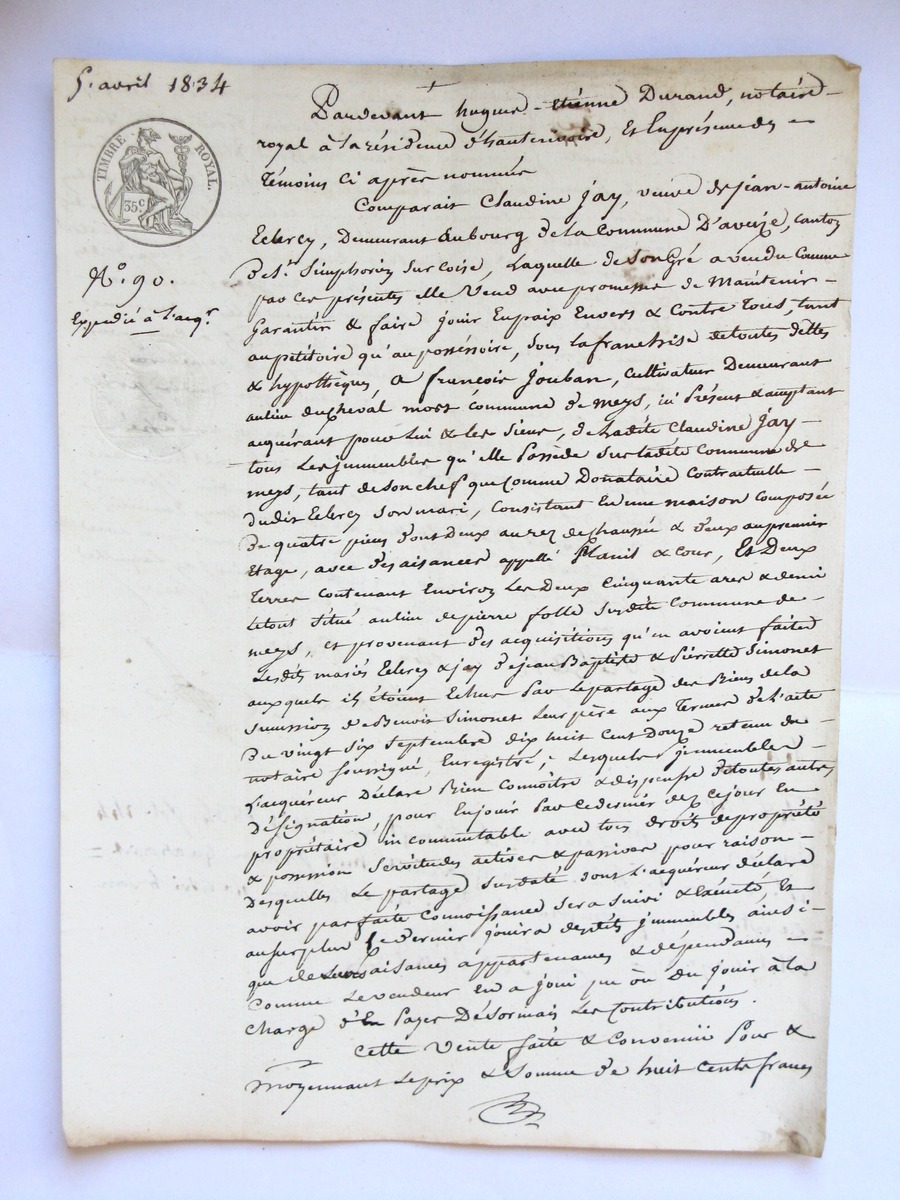 5. avril 1834
TIMBRE ROYAL.
35c
N.o 90.
Expedié à l'acq.r
Pardevant hugues-Etiénne Durand, notaire-
royal à la résidence d'hauterivoire, Et En présence des -
témoins ci après nommés
Comparait Claudine Jay, veuve de jean-antoine
Eclercy, Demeurant au bourg de la Commune D'aveize, canton
de St. Simphorien sur coise, Laquelle de son Gré a vendu Comme
par ces présentes elle Vend avec promesse de Maintenir -
Garantir & faire jouir En paix Envers & Contre Tous, tant
au pétitoire qu'au posséssoire, sous la franchise de toutes dettes
& hypothèques, a françois Jouban, Cultivateur Demeurant
au lieu du cheval mort commune de meys, ici Présent & acceptant
acquérant pour Lui & les Siens, de ladite Claudine Jay -
tous Les jmmeubles qu'elle Possède sur ladite Commune de
meys, tant de son chef que comme Donataire Contractuelle -
dudit Eclercy son mari, Consistant En une maison composée
de quatre pièces dont Deux au rez de chaussée & deux au premier
Etage, avec des aisances appellé Planit & Cour, Et Deux
Terres contenant Environ Les Deux Cinquante ares & demi
Le tout situé au lieu de pierre folle susdite Commune de -
meys, et provenant des acquisitions qu'en avoient faites
Lesdits mariés Eclercy & jay de jean Baptiste & Pierrette Simonet
auxquels ils étoient Echus Par Le partage des Biens de la
Succession de Benoit Simonet Leur père aux Termes de l'acte
Du vingt six Septembre dix huit Cent Douze retenu du -
notaire soussigné, Enregistré, Lesquels jmmeubles -
l'acquéreur Déclare Bien Connoître & dispense de toutes autres
Désignation, pour En jouir Par ce dernier dez ce jour En
propriétaire incommutable avec tous droits de propriété
& possession Servitudes actives & passives pour raison -
Desquelles Le partage susdaté dont l'acquéreur déclare
avoir parfaite Connoissance sera suivi & Exécuté Et
au surplus Ce dernier jouira desdits jmmeubles ainsi -
que de Leurs aisances appartenances & dépendances -
Comme Le vendeur En a joui pu ou du jouir à la
Charge d'En Payer Désormais Les Contributions.
Cette Vente faite & Convenüe Pour &
moyennant Le prix & Somme de huit Cents francs